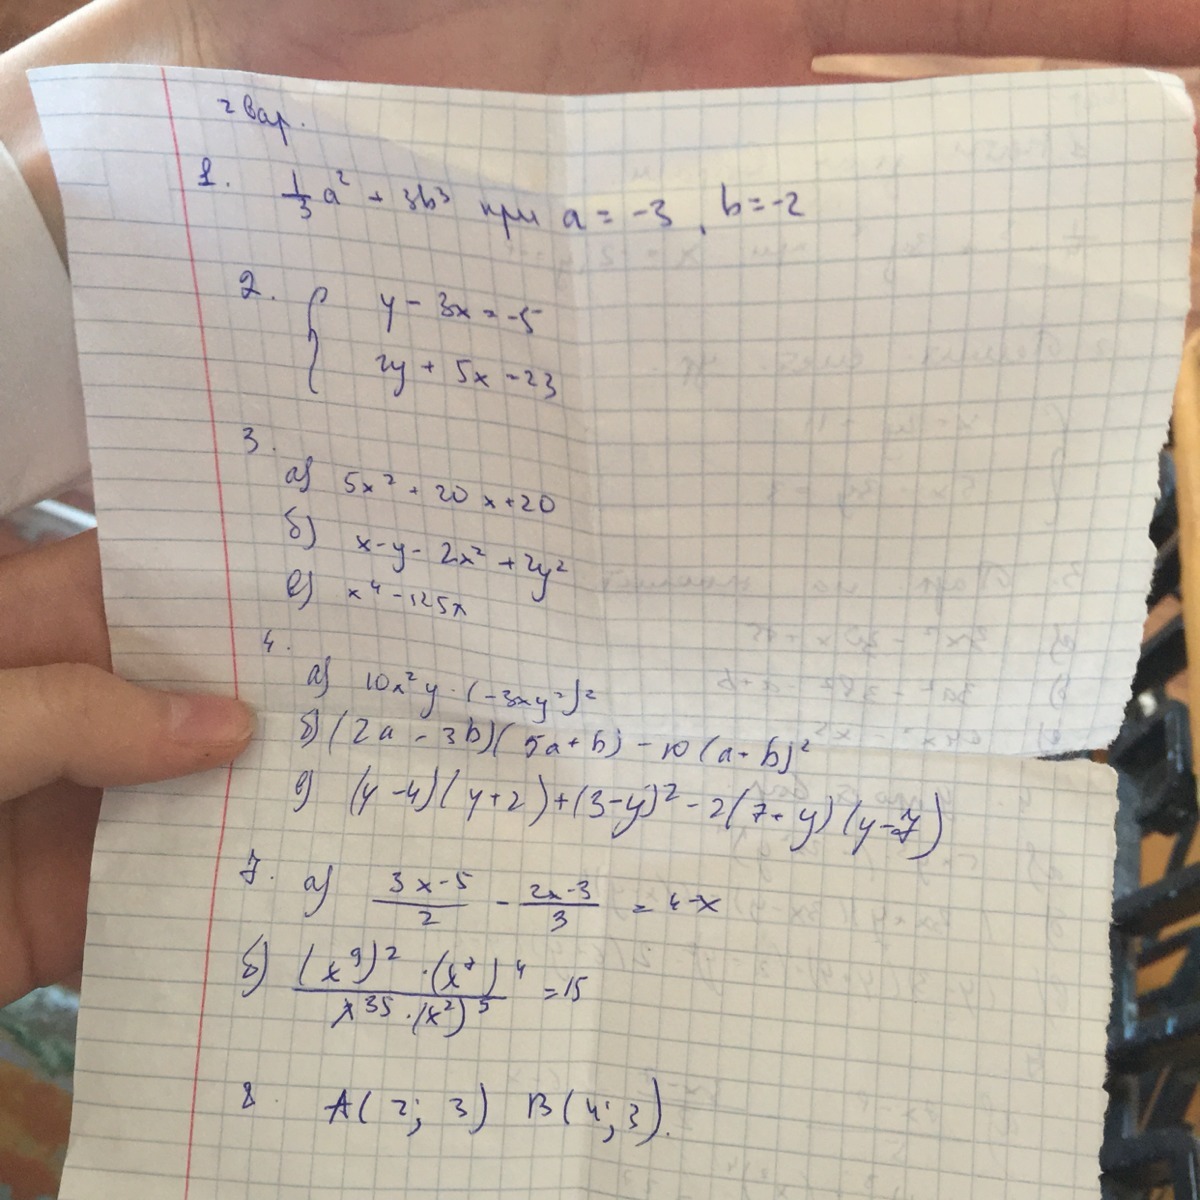 2 вар.
1. 1/3 a² + 3b³ при a = -3, b = -2
2. { y - 3x = -5
2y + 5x = 23
3.
а) 5x² + 20x + 20
б) x - y - 2x² + 2y²
в) x⁴ - 125x
4.
а) 10x²y · (-3xy²)²
б) (2a - 3b)(5a + b) - 10(a - b)²
в) (y - 4)(y + 2) + (3 - y)² - 2(7 + y)(y - 7)
7. а) (3x - 5)/2 - (2x - 3)/3 = 4 - x
б) ((x⁹)² · (x⁷)⁴)/(x³⁵ · (x²)⁵) = 15
8. A(2; 3) B(4; 3).